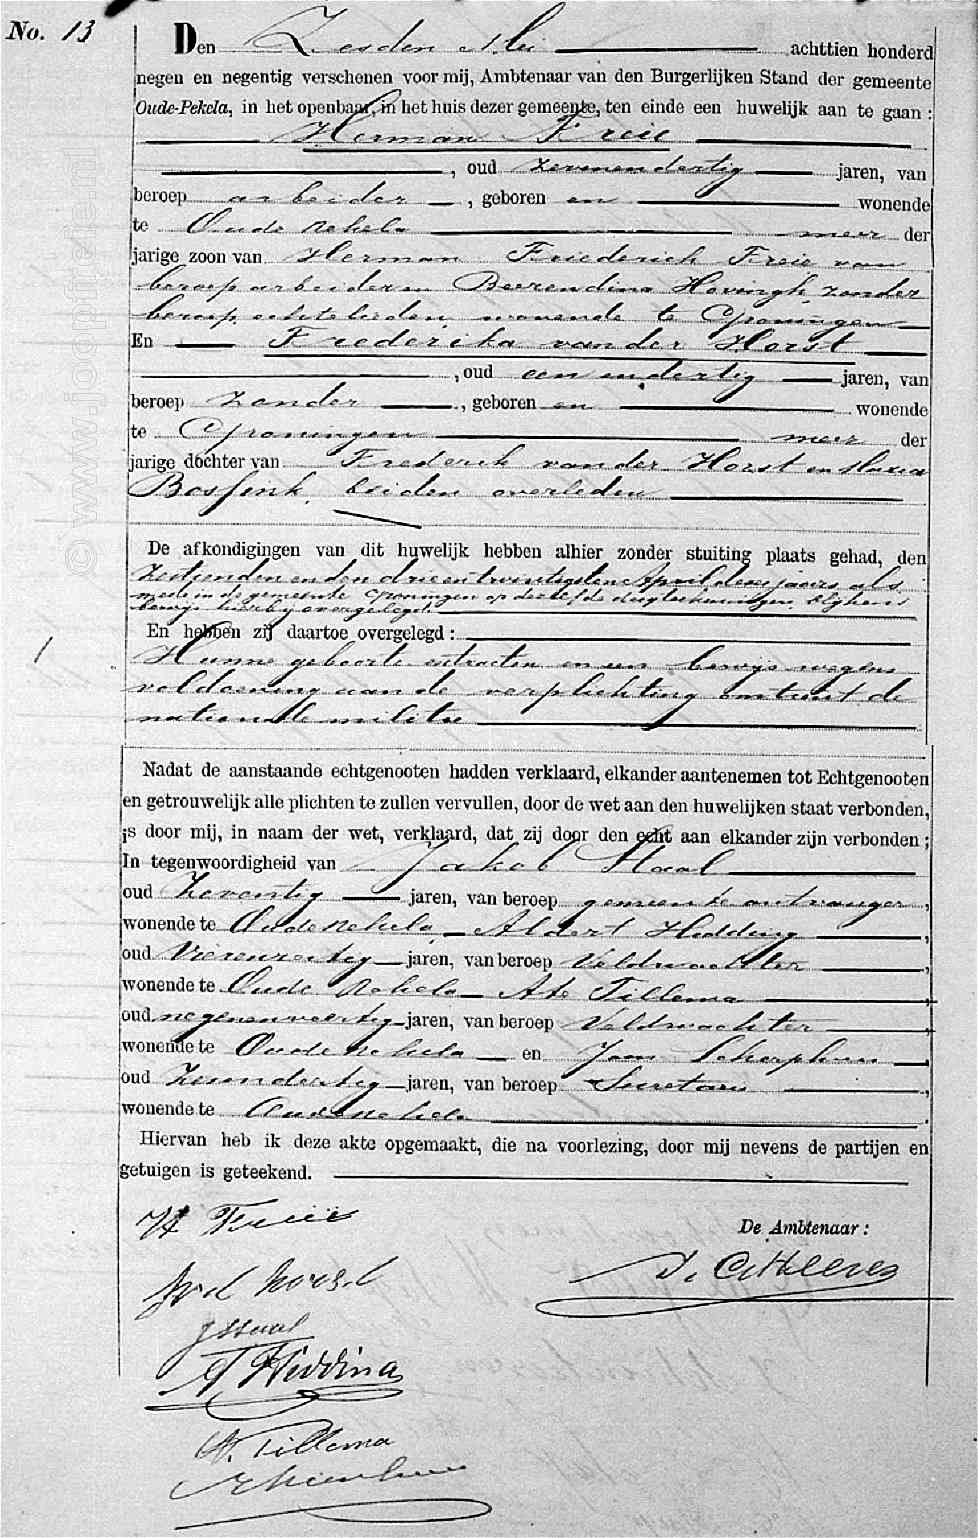 No. 13
Den Zesden Mei achttien honderd
negen en negentig verschenen voor mij, Ambtenaar van den Burgerlijken Stand der gemeente
Oude-Pekela, in het openbaar, in het huis dezer gemeente, ten einde een huwelijk aan te gaan:
Herman Freie
, oud zevenendertig jaren, van
beroep arbeider, geboren en wonende
te Oude Pekela meer der
jarige zoon van Herman Friederich Freie van
beroep arbeider en Beerendina Hovingh, zonder
beroep, echtelieden, wonende te Groningen
En Frederika van der Horst
, oud een en dertig jaren, van
beroep zonder, geboren en wonende
te Groningen meer der
jarige dochter van Frederik van der Horst en Maria
Bossink, beiden overleden
De afkondigingen van dit huwelijk hebben alhier zonder stuiting plaats gehad, den
Zestienden en den drieentwintigsten April dezes jaars, als
mede in de gemeente Groningen op dezelfde dagteekeningen, blijkens
bewijs hierbij overgelegd
En hebben zij daartoe overgelegd:
Hunne geboorte extracten en een bewijs wegens
voldoening aan de verplichting omtrent de
nationale militie
Nadat de aanstaande echtgenooten hadden verklaard, elkander aantenemen tot Echtgenooten
en getrouwelijk alle plichten te zullen vervullen, door de wet aan den huwelijken staat verbonden,
is door mij, in naam der wet, verklaard, dat zij door den echt aan elkander zijn verbonden;
In tegenwoordigheid van Jakob
oud Zeventig jaren, van beroep gemeente ontvanger,
wonende te Oude Pekela, Aldert Hidding,
oud Vierenzestig jaren, van beroep Veldwachter,
wonende te Oude Pekela Ate Tillema
oud negenenveertig jaren, van beroep Veldwachter
wonende te Oude Pekela en Jan,
oud jaren, van beroep Secretaris,
wonende te Oude Pekela.
Hiervan heb ik deze akte opgemaakt, die na voorlezing, door mij nevens de partijen en
getuigen is geteekend.
H Freie
De Ambtenaar:
F v d Horst
A Hiddina
A. Tillema
© www.jooppfefie.nl